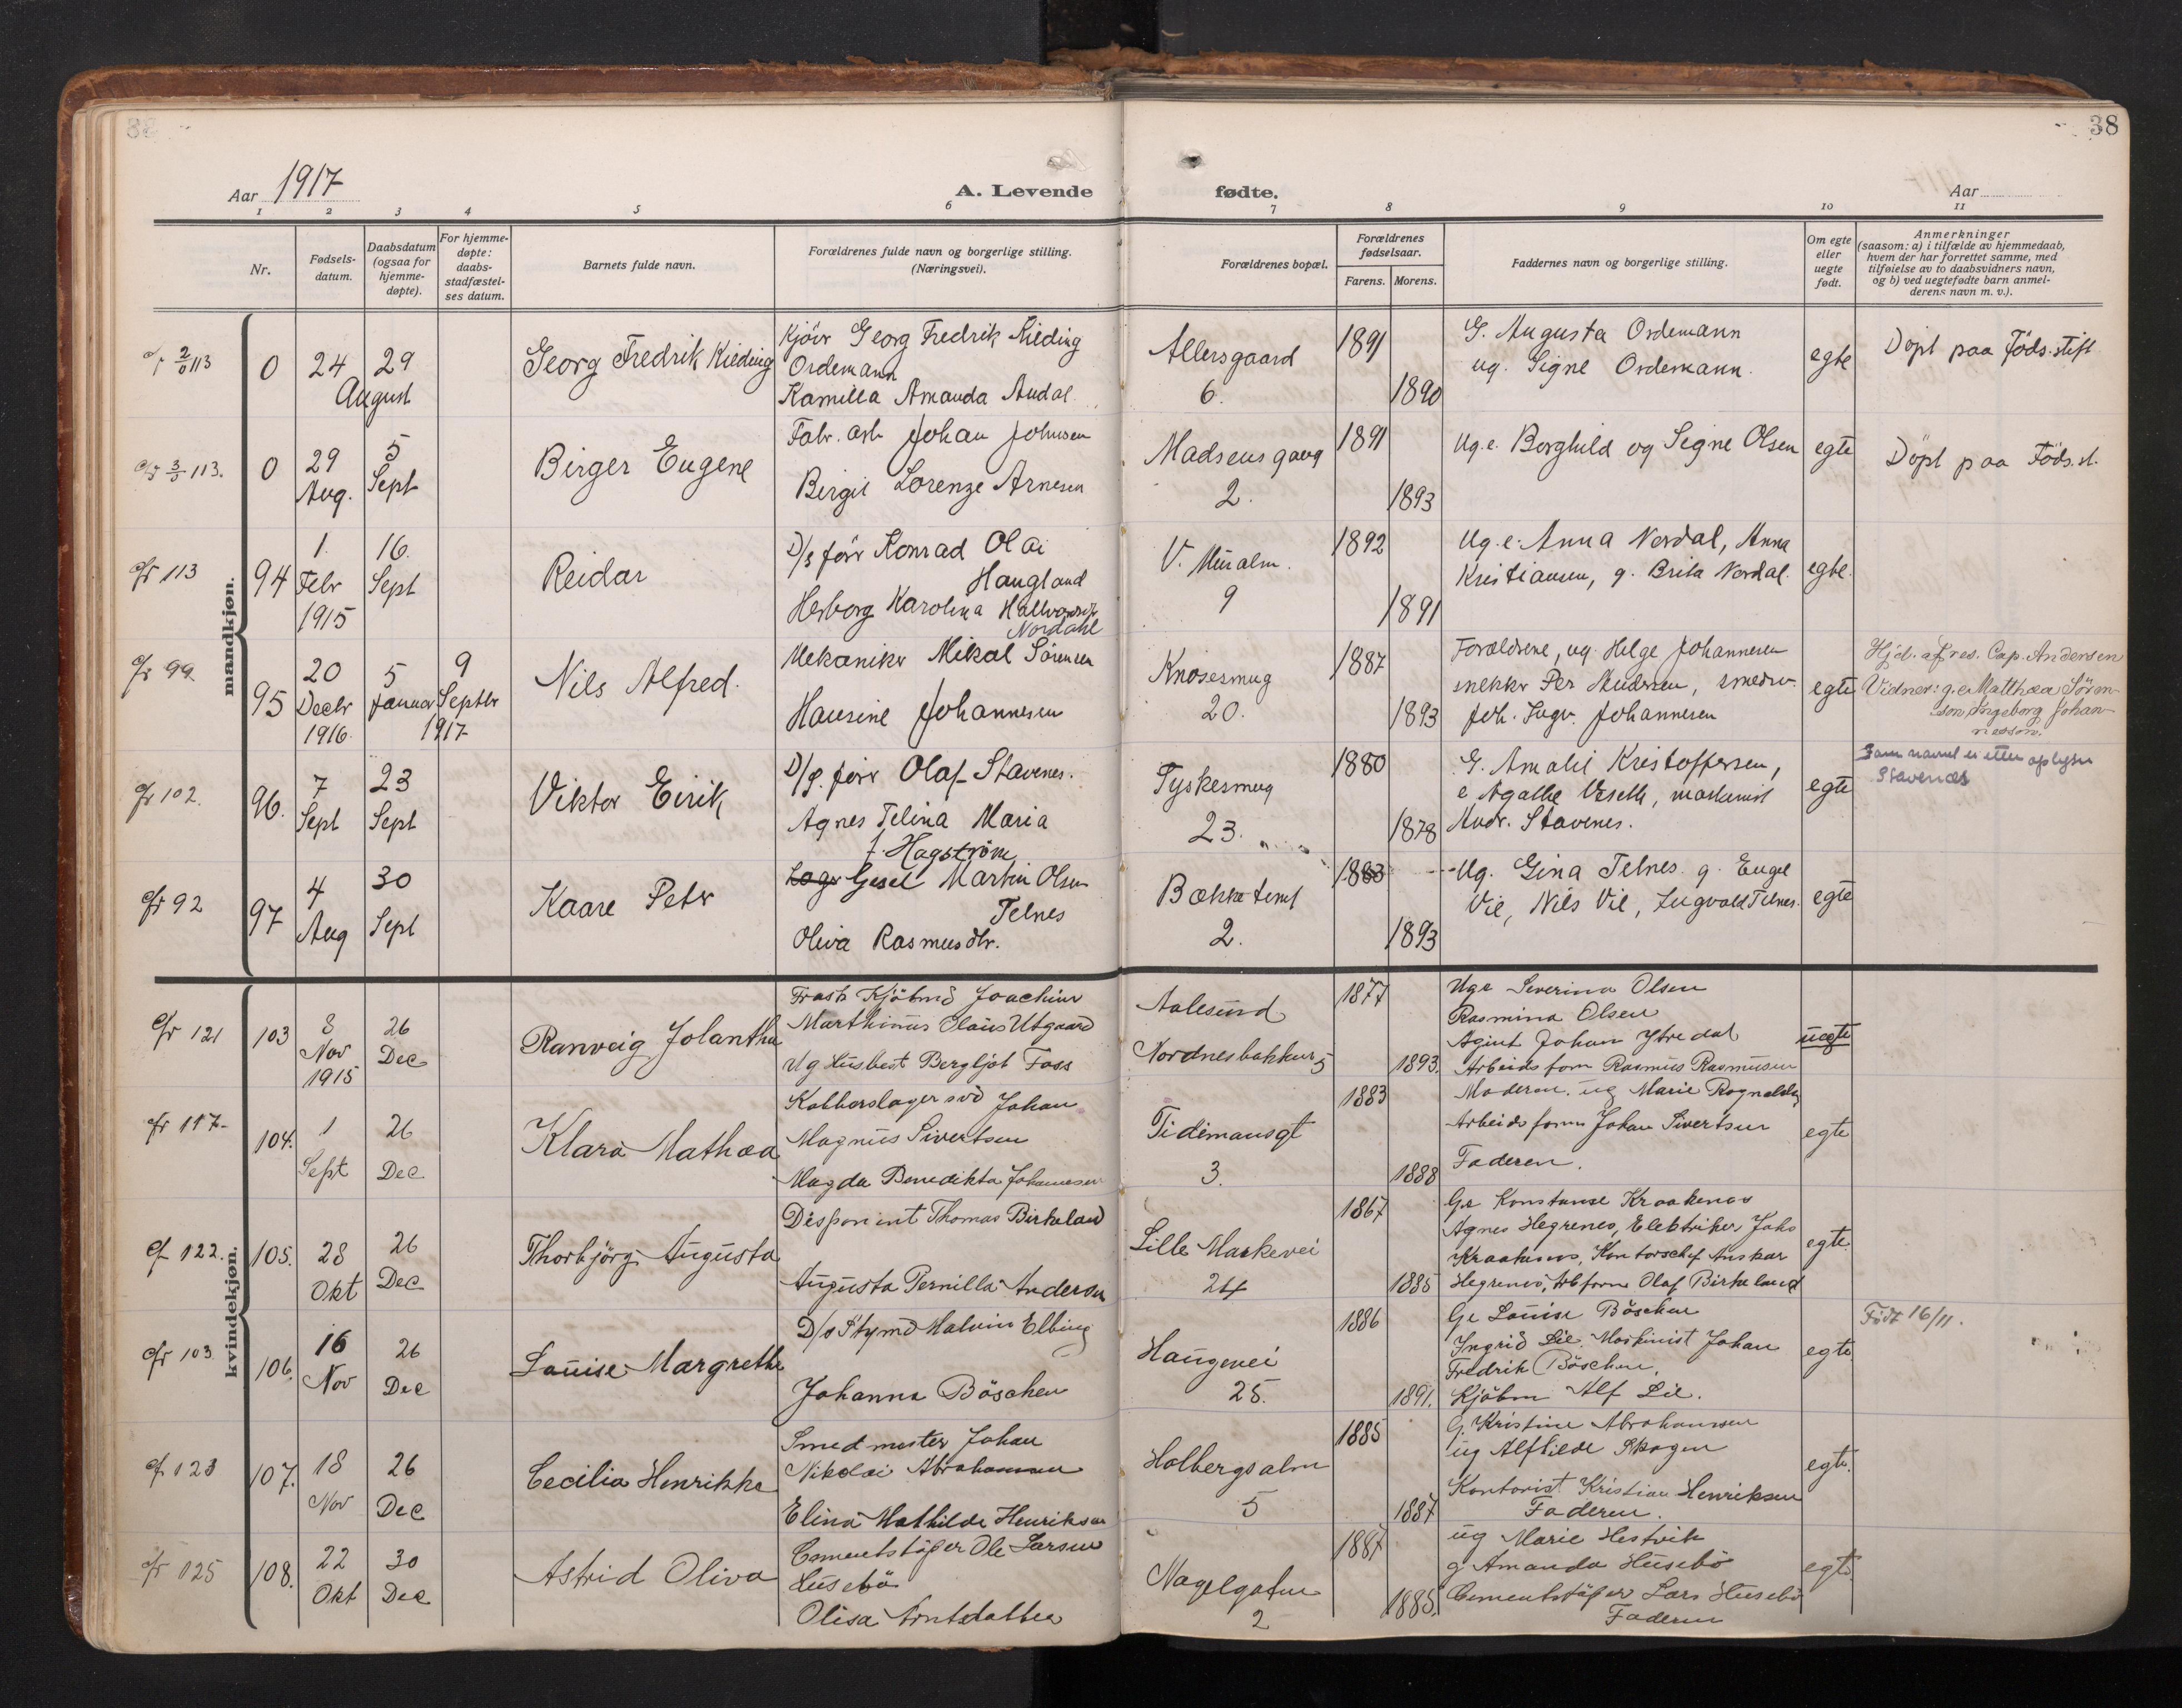 38
Aar 1917
A. Levende fødte.
Aar
1 2 3 4 5 6 7 8 9 10 11
Nr.
Fødsels-
datum.
Daabsdatum
(ogsaa for
hjemme-
døpte).
For hjemme-
døpte:
daabs-
stadfæstel-
ses datum.
Barnets fulde navn.
Forældrenes fulde navn og borgerlige stilling.
(Næringsvei).
Forældrenes bopæl.
Forældrenes
fødselsaar.
Farens. Morens.
Faddernes navn og borgerlige stilling.
Om egte
eller
uegte
født.
Anmerkninger
(saasom: a) i tilfælde av hjemmedaab,
hvem der har forrettet samme, med
tilføielse av to daabsvidners navn,
og b) ved uegtefødte barn anmel-
derens navn m. v.).
mandkjøn.
0
24 29
August
Georg Fredrik Kieding
Kjörr Georg Fredrik Kieding
Ordemann
Kamilla Amanda Audal
Allersgaard
6.
1891
1890
G. Augusta Ordemann
ug. Signe Ordemann.
egte
Döpt paa Föds.stift
0
29
Aug.
5
Sept
Birger Eugene
Fabr. arb Johan Johnsen
Birgit Lorenze Arnesen
Madsensgang
2.
1891
1893
Ug.e. Borghild og Signe Olsen
egte
Döpt paa Föds.st.
cfr 113
94
1.
Febr
1915
16.
Sept
Reidar
D/s förr Konrad Olai
Haugland
Herborg Karolina Hallvardsdtr
Nordahl
V. Muralm.
9
1892
1891
Ug.e. Anna Nordal, Anna
Kristiansen, g. Brita Nordal.
egte.
cfr 99
95
20
Decbr
1916.
5
Januar
9
Septbr
1917
Nils Alfred.
Mekaniker Mikal Sörensen
Hansine Johannesen
Knösesmug
20.
1887
1893
Forældrene, ug. Helge Johannesen
snekker Per Knudsen, smedsv.
Joh. Ingv. Johannesen
egte
Hjd. af res. Cap. Andersen
Vidner: g.e. Matthea Sören-
sen, Ingeborg Johan-
nessen.
cfr 102.
96.
7
Sept
23
Sept
Viktor Eirik
D/s. förr Olaf Stavenes.
Agnes Telina Maria
f. Hagström
Tyskesmug
23.
1880
1878
G. Amalie Kristoffersen,
e Agathe Veseth, maskinist
Andr. Stavenes.
egte
Stavenes
cfr 92
97
4
Aug
30
Sept
Kaare Peter
Lager Gesel Martin Olsen
Telnes
Oliva Rasmusdtr.
Bække temt
2.
1883
1893
Ug. Gina Telnes. g. Engel
Vie, Nils Vie, Ingvald Telnes.
egte
kvindekjøn.
cfr 121
103
8
Nov
1915
26
Dec
Ranveig Jolantha
Frask Kjöbmd Joachim
Marthinus Olaus Utgaard
Ug Husbest Bergljot Foss
Aalesund
Nordnesbakken 5
1877
1893.
Uge Severina Olsen
Rasmina Olsen
Agent Johan Ytredal
Arbeidsform Rasmus Rasmussen
uegte
cfr 117
104.
1
Sept
26
Dec
Klara Mathea
Kobberslagersvd Johan
Magnus Sivertsen
Magda Benedikta Johannesen
Tidemansgt
3.
1883
1888
Moderen. ug Marie Rognaldsen
Arbeidsform Johan Sivertsen
Faderen.
egte
cfr 122.
105.
28
Okt
26
Dec
Thorbjörg Augusta
Disponent Thomas Birkeland
Augusta Pernilla Andersen
Lille Markevei
24
1867
1885
Ge Konstanse Kraakenes
Agnes Hegrenes, Elektriker Johs
Kraakenes, Kontorschef Anskar
Hegrenes, Arbform Olaf Birkeland
egte.
cfr 103
106.
16
Nov
26
Dec
Louise Margrethe
D/s Stymd Malvin Elbing
Johanna Böschen
Haugevei
25.
1886
1891.
Ge Louise Böschen
Ingrid Lie. Maskinist Johan
Fredrik Böschen,
Kjöbm Alf Lie.
egte.
Född 16/11.
cfr 123
107.
18
Nov
26
Dec
Cecilia Henrikke
Smedmester Johan
Nikolai Abrahamsen
Elina Mathilde Henriksen
Holbergsalm
5
1885
1887
G. Kristine Abrahamsen
ug Alfhilde Skogen
Kontorist Kristian Henriksen
Faderen.
egte.
cfr 125
108.
22
Okt
30
Dec
Astrid Oliva
Cementstöper Ole Larsen
Husebö
Olisa Arntsdatter
Nagelgaten
2
1887
1885.
ug Marie Hestvik
g Amanda Husebö
Cementstöper Lars Husebö
Faderen
egte.